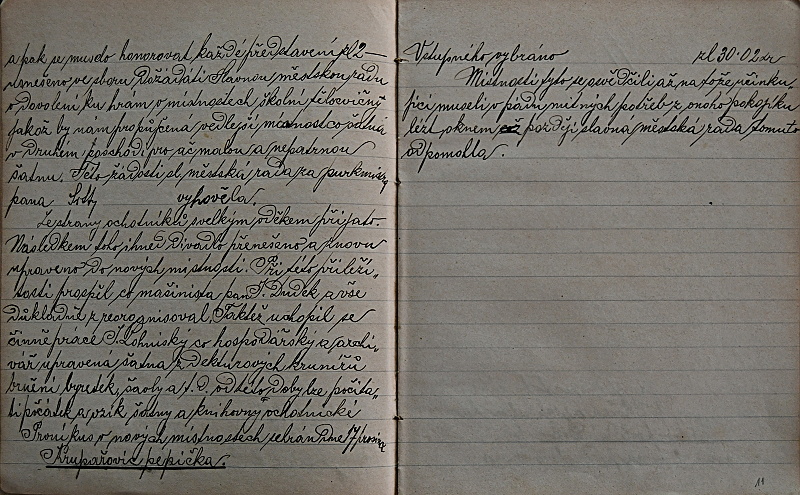 a pak se muselo honorovat každé představení zl 2 —
usnešeno ve sboru požádati slavnou městskou radu
o dovolení ku hrám v místnostech školní tělocvičny
jakož by nám propůjčena vedlejší místnost co šatna
v druhém poschodí pro ač malou a nepatrnou
šatnu. Této žádosti sl. městská rada za purkmistra
pana vyhověla.
Ze strany ochotníků s velkým vděkem přijato.
Následkem toho ihned divadlo přenešeno a znovu
upraveno do nových místností. Při této příleži-
tosti prospěl co mašinista pan J. Dudek a vše
důkladně zreorganisoval. Taktéž uchopil se
činně práce J. co hospodářský a archi-
vář upravená šatna z dekturových krunířů
brnění bysutek, šavlí a t. d. od této doby lze počíta-
ti počátek a vznik šatny a knihovny ochotnické
První kus v nových místnostech sehrán dne 17 prosince
Krupařovic pepička.
Vstupného vybráno zl 30·02 kr
Místnosti tyto se osvědčili až na to že účinku-
jící museli v pádu nutných potřeb z onoho pokojíku
lézt oknem což později slavná městská rada tomuto
odpomohla.
11